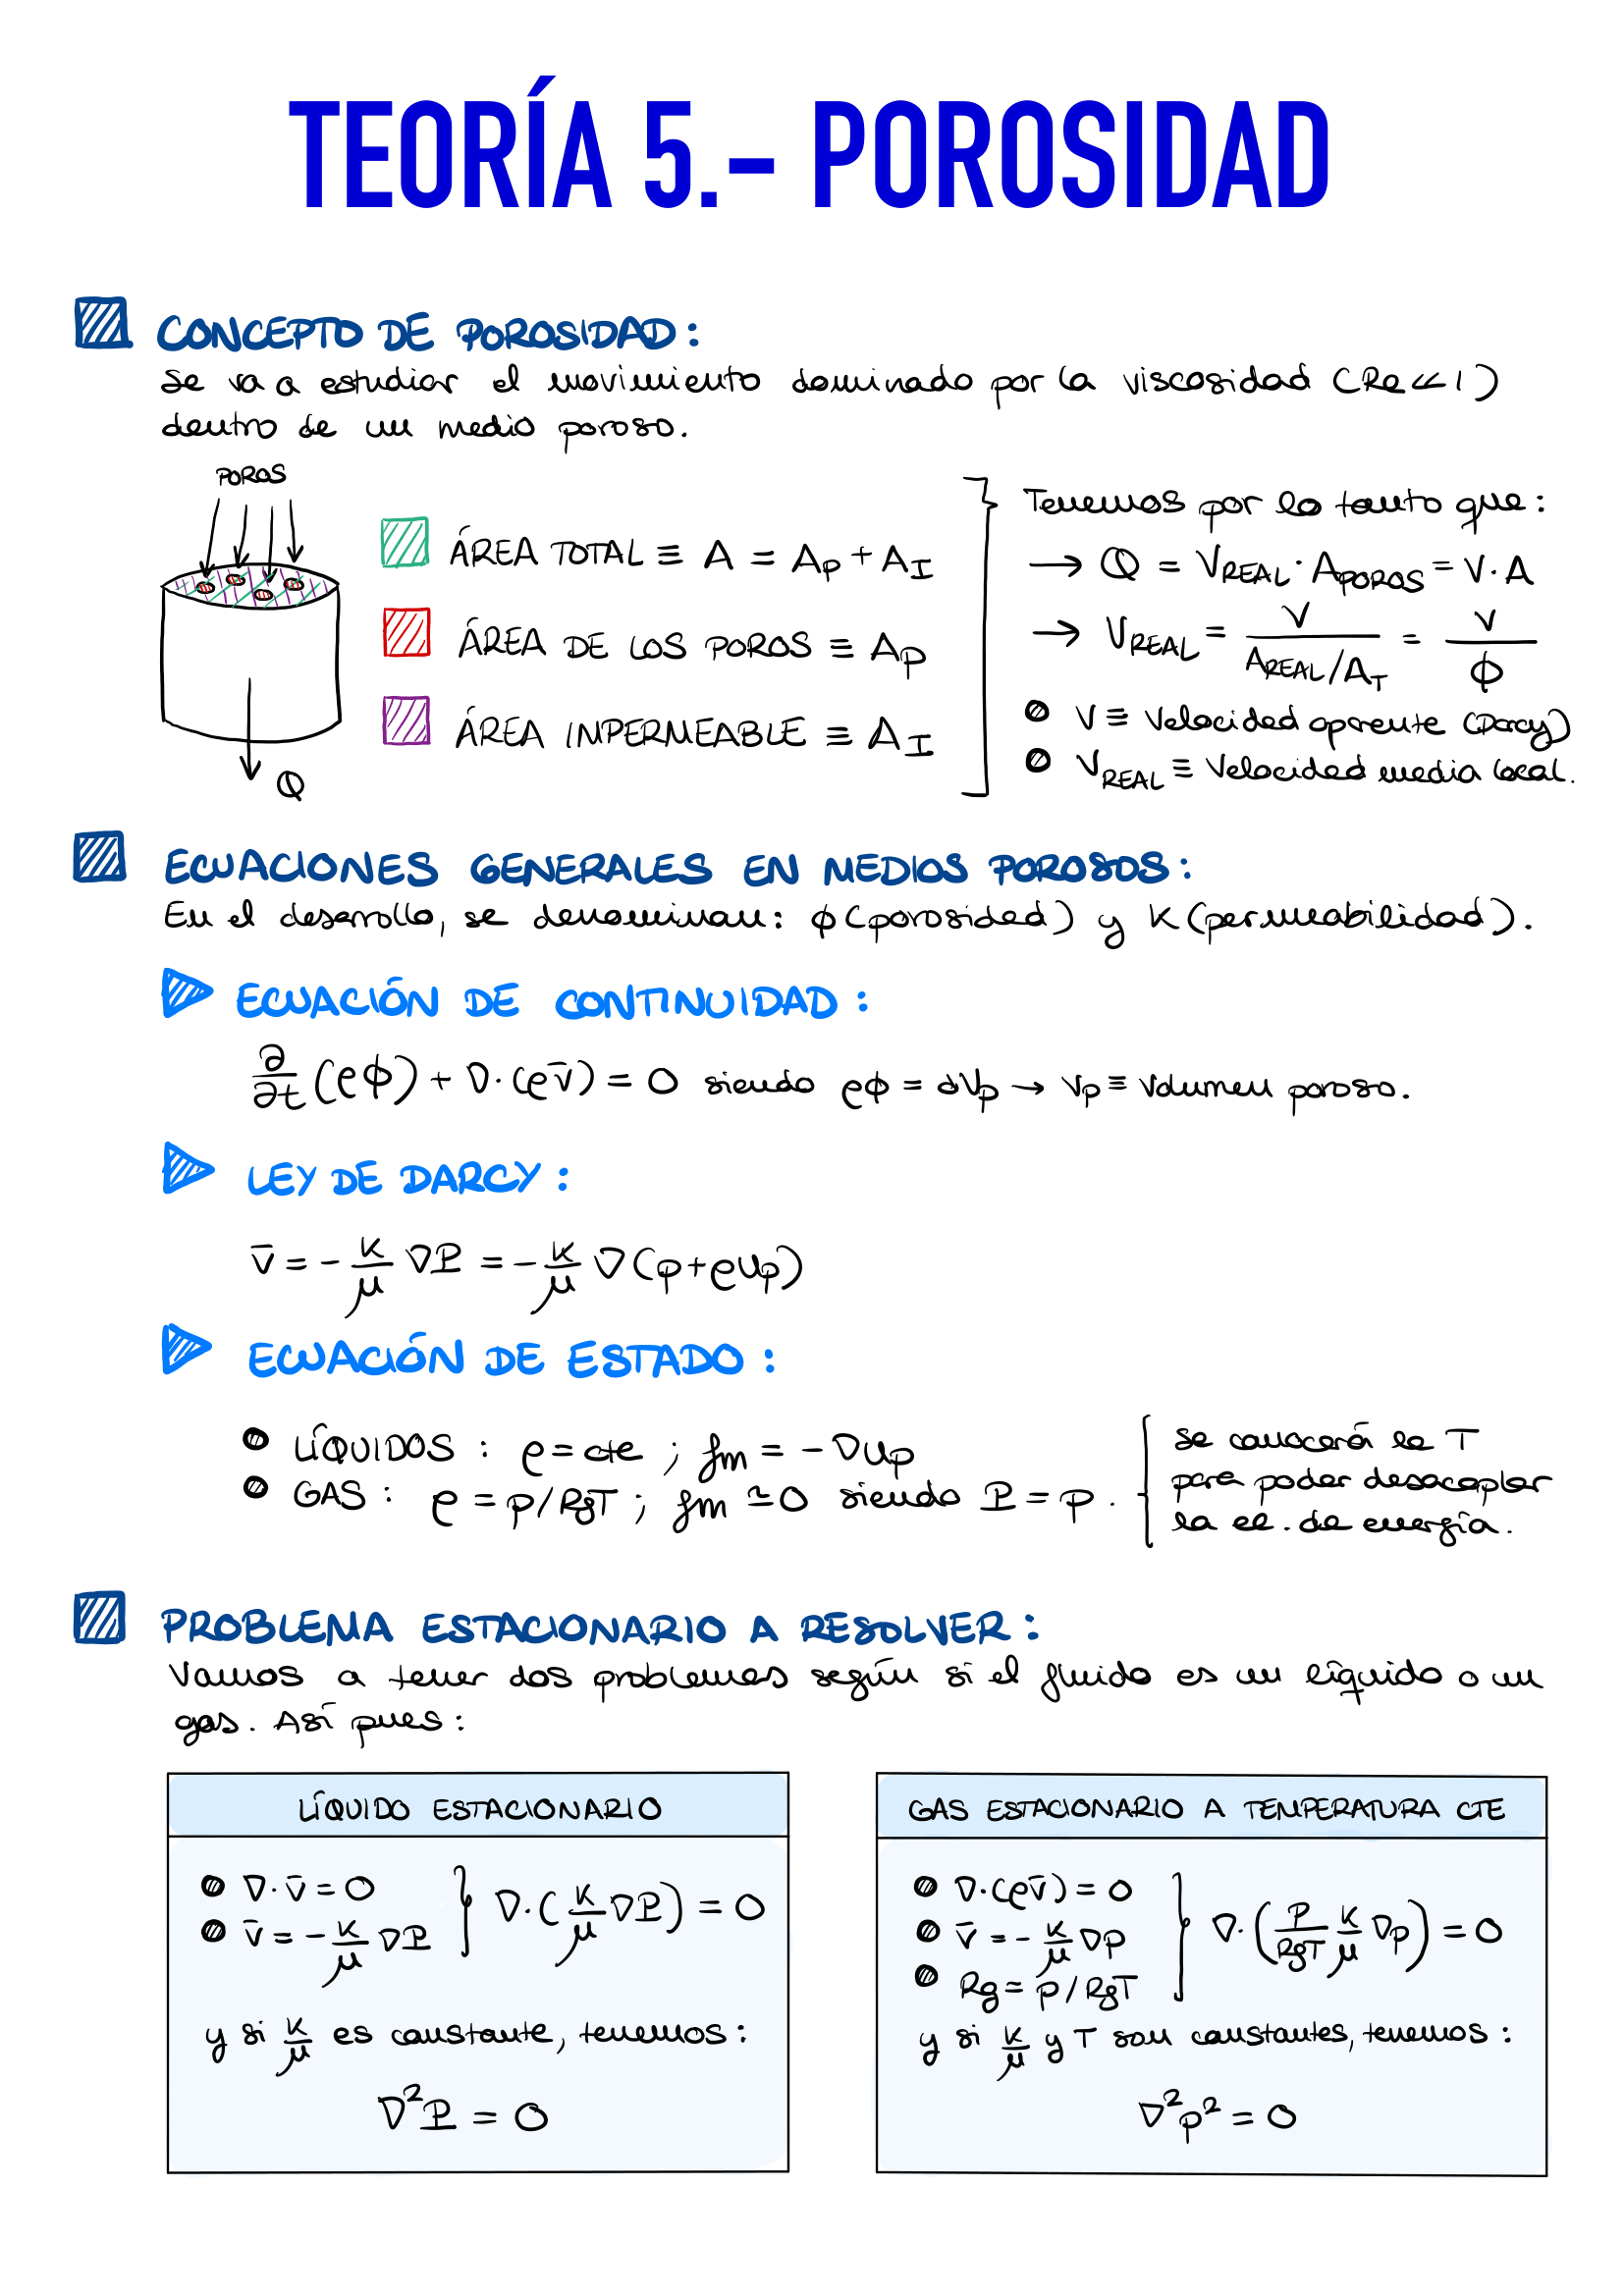 TEORÍA 5.- POROSIDAD
CONCEPTO DE POROSIDAD:
Se va a estudiar el movimiento dominado por la viscosidad (Re<<1)
dentro de un medio poroso.
POROS
Q
ÁREA TOTAL ≡ A = A_P + A_I
ÁREA DE LOS POROS ≡ A_P
ÁREA IMPERMEABLE ≡ A_I
Tenemos por lo tanto que:
→ Q = V_REAL · A_POROS = V · A
→ V_REAL = V / (A_REAL/A_T) = V/ϕ
V ≡ Velocidad aparente (Darcy)
V_REAL ≡ Velocidad media local.
ECUACIONES GENERALES EN MEDIOS POROSOS:
En el desarrollo, se denominan: ϕ (porosidad) y K (permeabilidad).
ECUACIÓN DE CONTINUIDAD:
∂/∂t (ρϕ) + ∇·(ρv̄) = 0 siendo ρϕ = dV_p → V_p ≡ Volumen poroso.
LEY DE DARCY:
v̄ = - K/μ ∇P = - K/μ ∇(p+ρU_p)
ECUACIÓN DE ESTADO:
LÍQUIDOS: ρ = cte ; fm = -∇U_p
GAS: ρ = p/RgT ; fm ≃ 0 siendo P = p.
se conocerá la T
para poder desacoplar
la ec. de energía.
PROBLEMA ESTACIONARIO A RESOLVER:
Vamos a tener dos problemas según si el fluido es un líquido o un
gas. Así pues:
LÍQUIDO ESTACIONARIO
∇·v̄ = 0
v̄ = - K/μ ∇P
∇·(K/μ ∇P) = 0
y si K/μ es constante, tenemos:
∇²P = 0
GAS ESTACIONARIO A TEMPERATURA CTE
∇·(ρv̄) = 0
v̄ = - K/μ ∇p
Rg = p/RgT
∇·(p/RgT K/μ ∇p) = 0
y si K/μ y T son constantes, tenemos:
∇²p² = 0